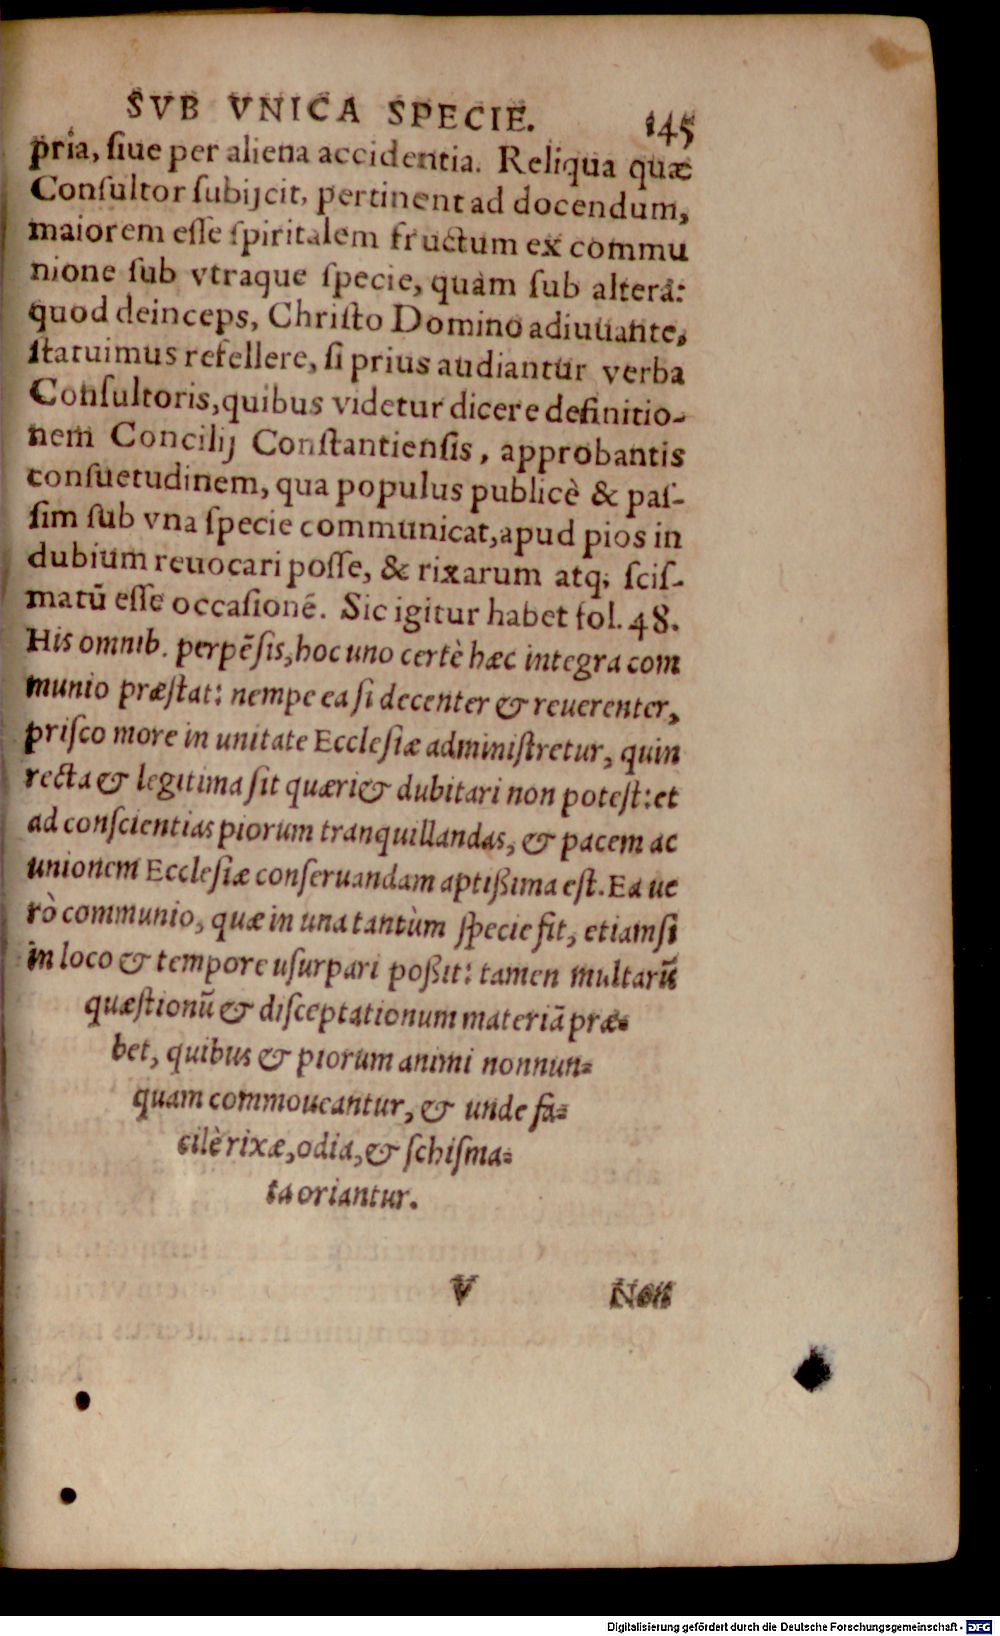 SVB VNICA SPECIE. 145
pria, ſiue per aliena accidentia. Reliqua quæ
Conſultor ſubijcit, pertinent ad docendum,
maiorem eſſe ſpiritalem fructum ex commu
nione ſub vtraque ſpecie, quàm ſub altera:
quod deinceps, Chriſto Domino adiuuante,
ſtatuimus refellere, ſi prius audiantur verba
Conſultoris, quibus videtur dicere definitio-
nem Concilij Conſtantienſis, approbantis
conſuetudinem, qua populus publicè & paſ-
ſim ſub vna ſpecie communicat, apud pios in
dubium reuocari poſſe, & rixarum atq; sciſ-
matū eſſe occaſionē. Sic igitur habet fol. 48.
His omnib. perpēſis, hoc uno certè hæc integra com
munio præſtat: nempe ea ſi decenter & reuerenter,
priſco more in unitate Eccleſiæ adminiſtretur, quin
recta & legitima ſit quæri & dubitari non poteſt: et
ad conſcientias piorum tranquillandas, & pacem ac
unionem Eccleſiæ conſeruandam aptißima eſt. Ea ue
rò communio, quæ in una tantùm ſpecie fit, etiamſi
in loco & tempore uſurpari poßit: tamen multarū
quæſtionū & diſceptationum materiā præ-
bet, quibus & piorum animi nonnun-
quam commoueantur, & unde fa-
cilè rixæ, odia, & ſchiſma-
ta oriantur.
V Non
Digitalisierung gefördert durch die Deutsche Forschungsgemeinschaft - DFG